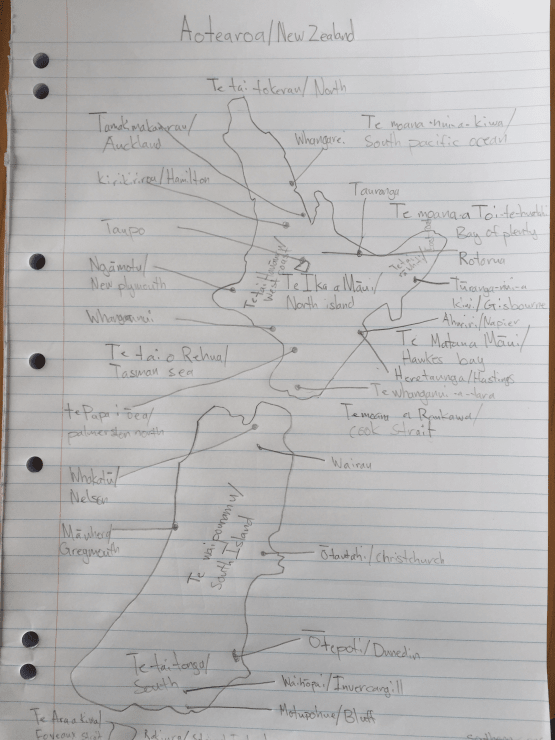 Aotearoa/New Zealand
Te tai tokerau/North
Tamakimakaurau/
Auckland
Whangarei
Te moana-nui-a-kiwa/
South pacific ocean
kirikiriroa/Hamilton
Tauranga
Te moana a Toi-te-huatahi
Bay of plenty
Taupo
Rotorua
Ngāmotu/
New plymouth
Te tai hauāuru/
West coast
Te Ika a Māui/
North island
Tūranga-nui-a
kiwi/Gisbourne
Whanganui
Ahuriri/Napier
Te tai o Rehua/
Tasman sea
Te Matau a Māui/
Hawkes bay
Heretaunga/Hastings
Te whanganui-a-tara
te Papa i ōea/
palmerston north
Te moana o Raukawa/
cook Strait
Wairau
Whakatū/
Nelson
Māwhera/
Greymouth
Te waipounamu/
South Island
Ōtautahi/christchurch
Ōtepoti/Dunedin
Te tai tonga/
South
Waihōpai/Invercargill
Motupohue/Bluff
Te Ara a Kiwa/